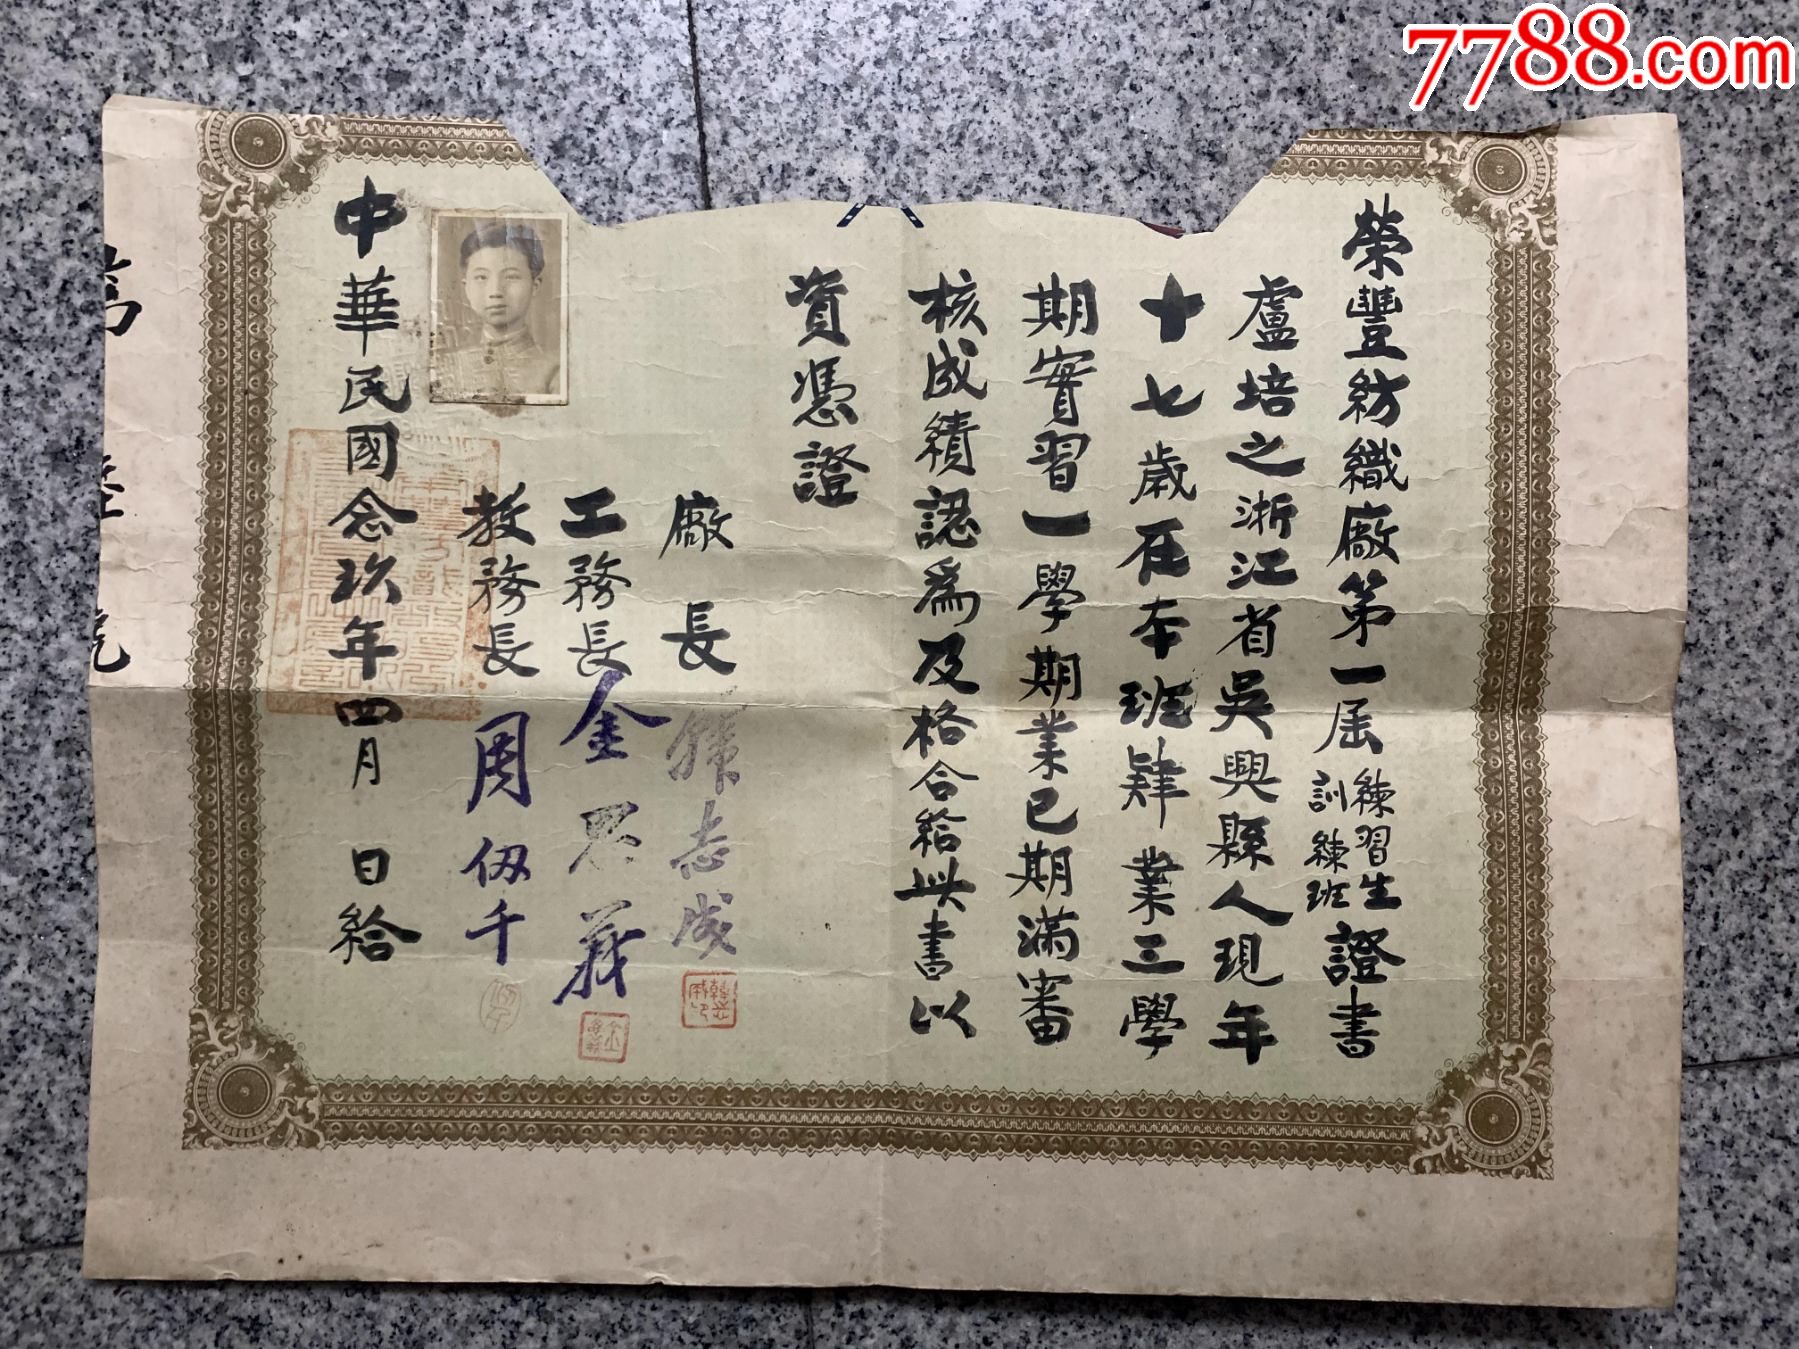 7788.com
榮豐紡織廠第一屆練習生訓練班證書
盧培之浙江省吳興縣人現年
十七歲在本班肄業三學
期實習一學期業已期滿審
核成績認爲及格合給此書以
資憑證
廠長
志成
工務長金
教務長周仞千
中華民國念玖年四月 日給
號